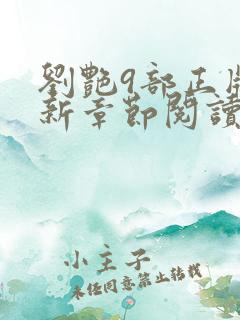 劉艷9部正
新章節閱讀
小主子
未经同意禁止转载